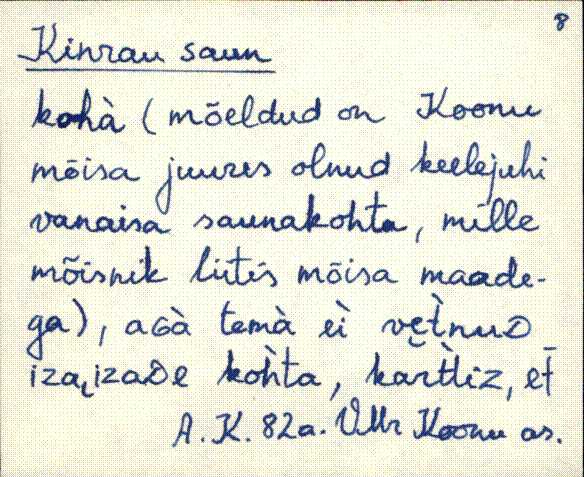 8
Kinrau saun
kohà (mõeldud on Koonu
mõisa juures olnud keelejuhi
vanaisa saunakohta, mille
mõisnik liitis mõisa maade-
ga), aGà temà eì vet̀nuD
iza, izaDe koh̀ta, kart̀liz, et̄
A. K. 82a. VMr Koonu as.